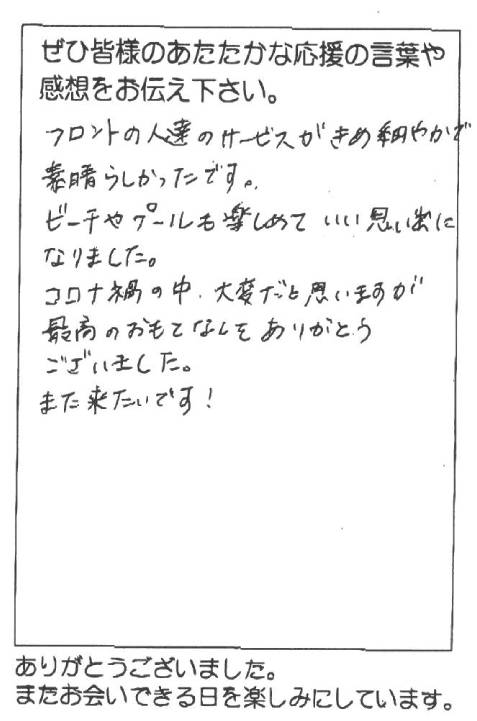 ぜひ皆様のあたたかな応援の言葉や
感想をお伝え下さい。
フロントの人達のサービスがきめ細やかで
素晴らしかったです。
ビーチやプールも楽しめていい思い出に
なりました。
コロナ禍の中、大変だと思いますが
最高のおもてなしをありがとう
ございました。
また来たいです!
ありがとうございました。
またお会いできる日を楽しみにしています。